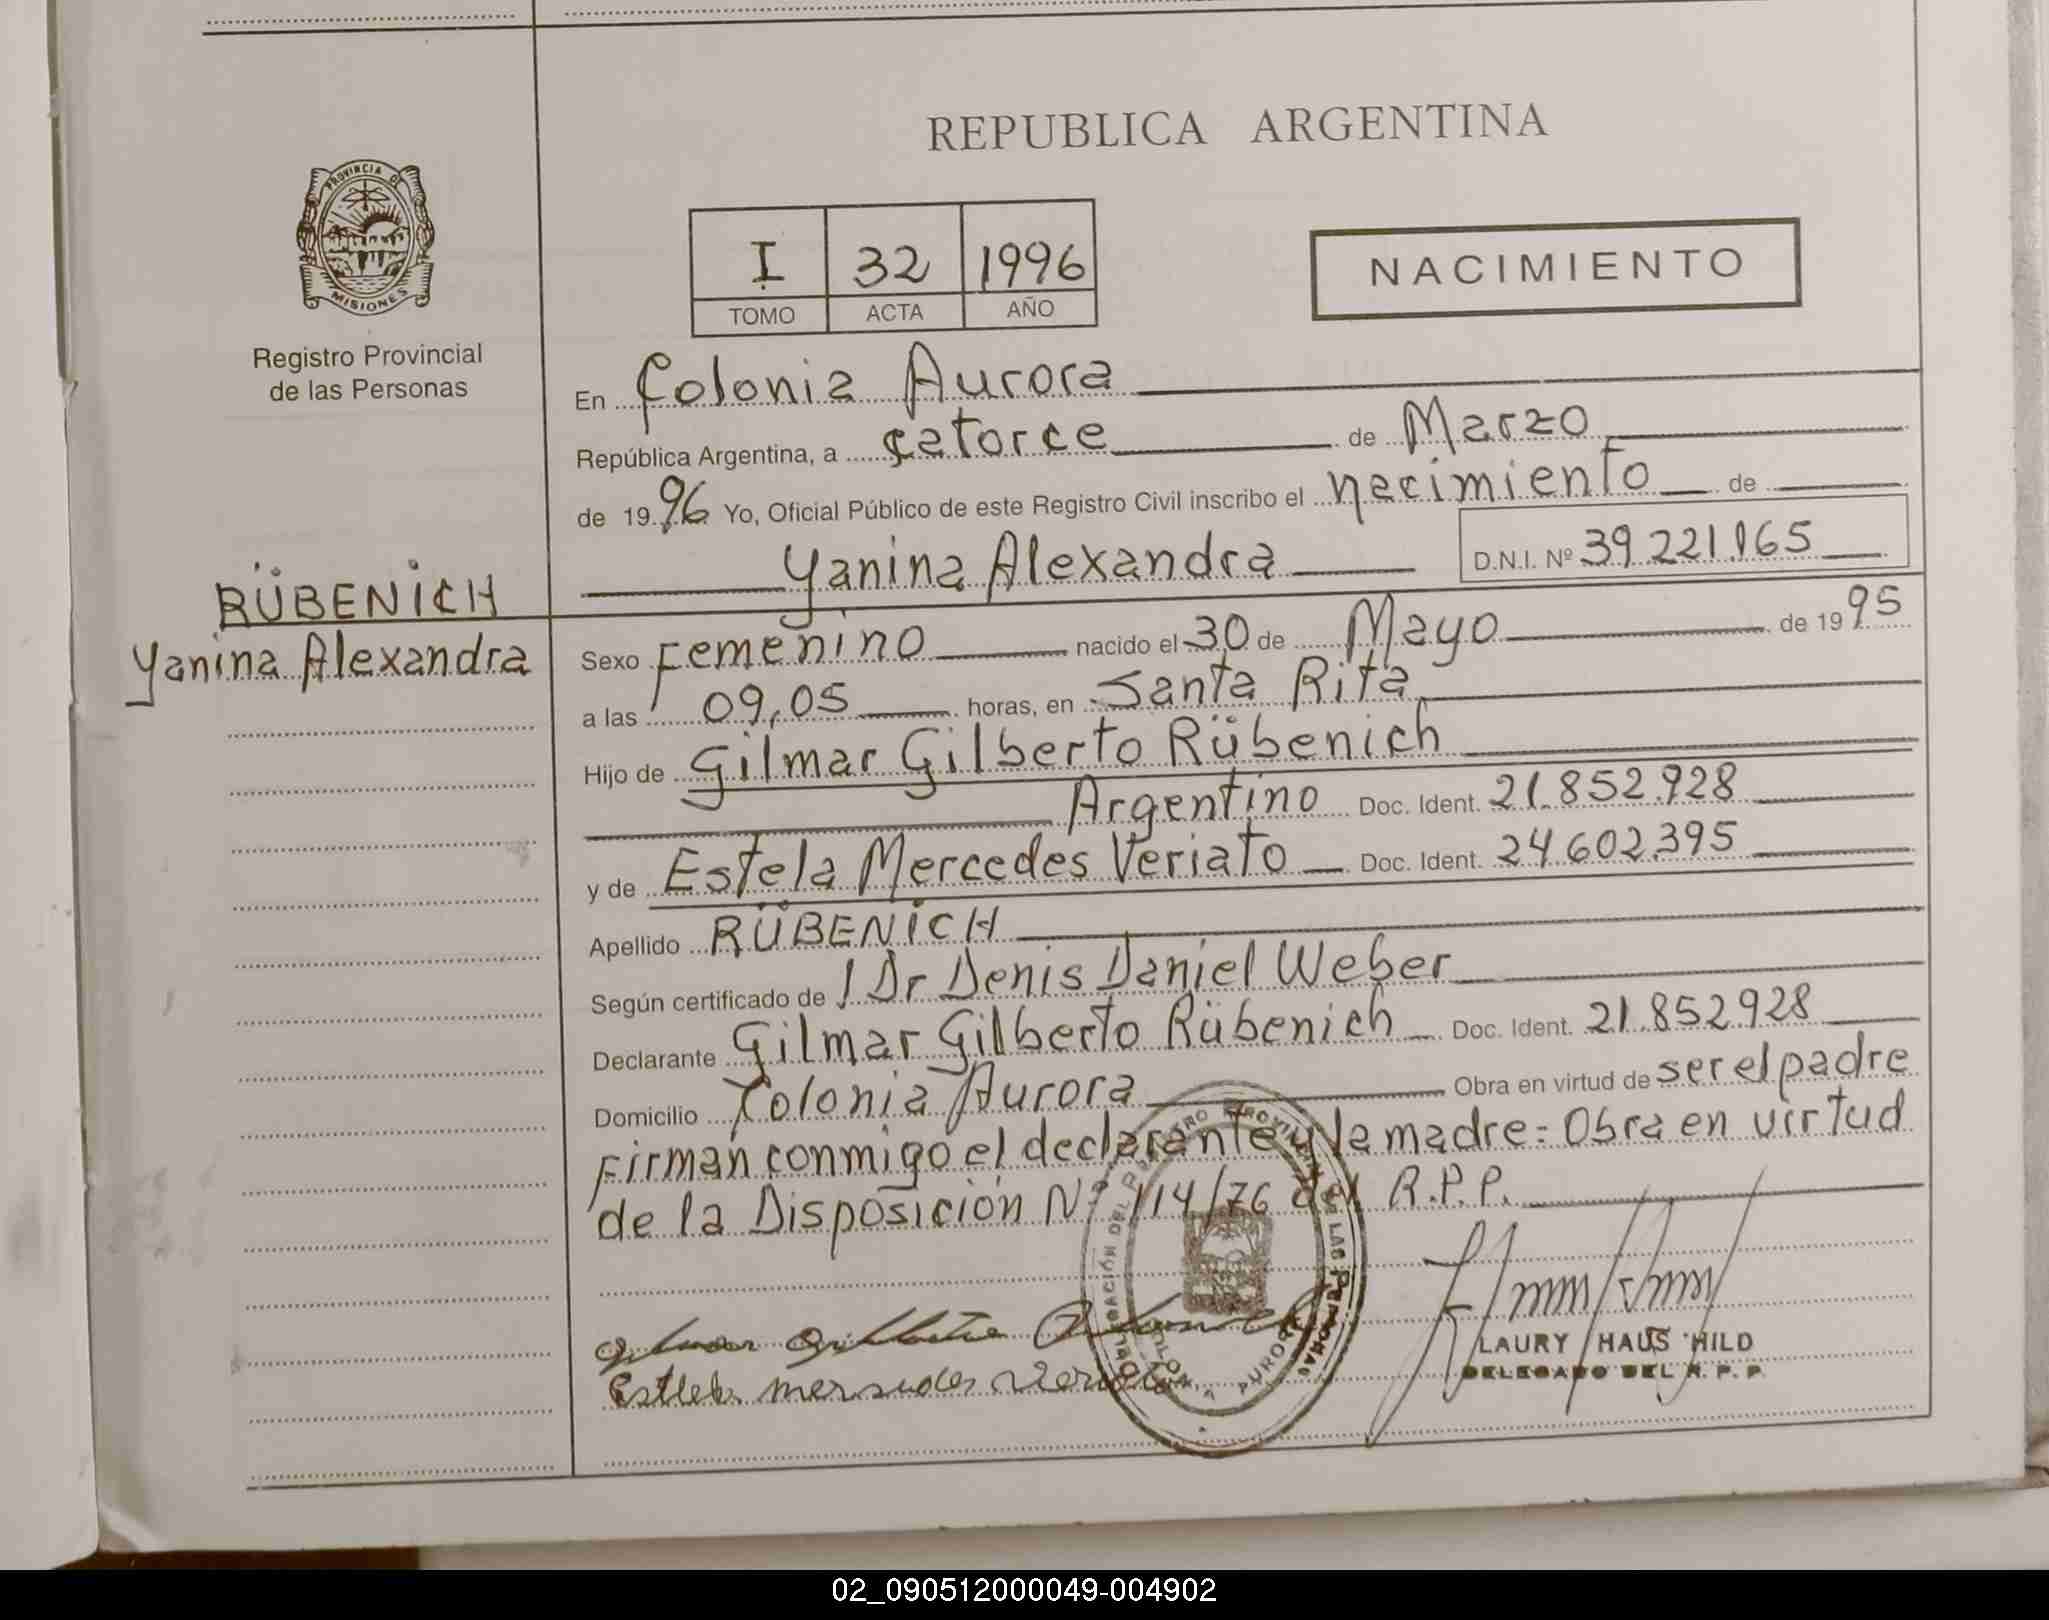 REPUBLICA ARGENTINA
PROVINCIA DE
MISIONES
Registro Provincial
de las Personas
I 32 1996
TOMO ACTA AÑO
NACIMIENTO
En Colonia Aurora
República Argentina, a catorce de Marzo
de 1996 Yo, Oficial Público de este Registro Civil inscribo el nacimiento de
Yanina Alexandra D.N.I. Nº 39.221.165
RÜBENICH
Yanina Alexandra
Sexo Femenino nacido el 30 de Mayo de 1995
a las 09,05 horas, en Santa Rita
Hijo de Gilmar Gilberto Rübenich
Argentino Doc. Ident. 21.852.928
y de Estela Mercedes Veriato Doc. Ident. 24.602.395
Apellido RÜBENICH
Según certificado de / Dr Denis Daniel Weber
Declarante Gilmar Gilberto Rübenich Doc. Ident. 21.852928
Domicilio Colonia Aurora Obra en virtud de ser el padre
Firman conmigo el declarante y la madre= Obra en virtud
de la Disposición Nº 114/76 del R.P.P.
LAURY HAUSHILD
DELEGADO DEL R.P.P.
02_090512000049-004902